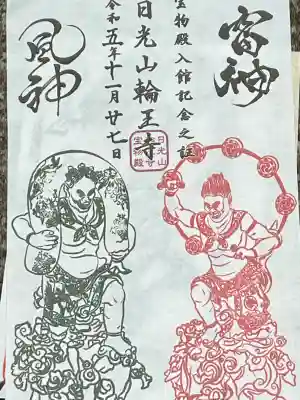 雷神
宝物殿入館記念之証
日光山輪王寺
令和五年十一月廿七日
風神
日光山
宝物殿